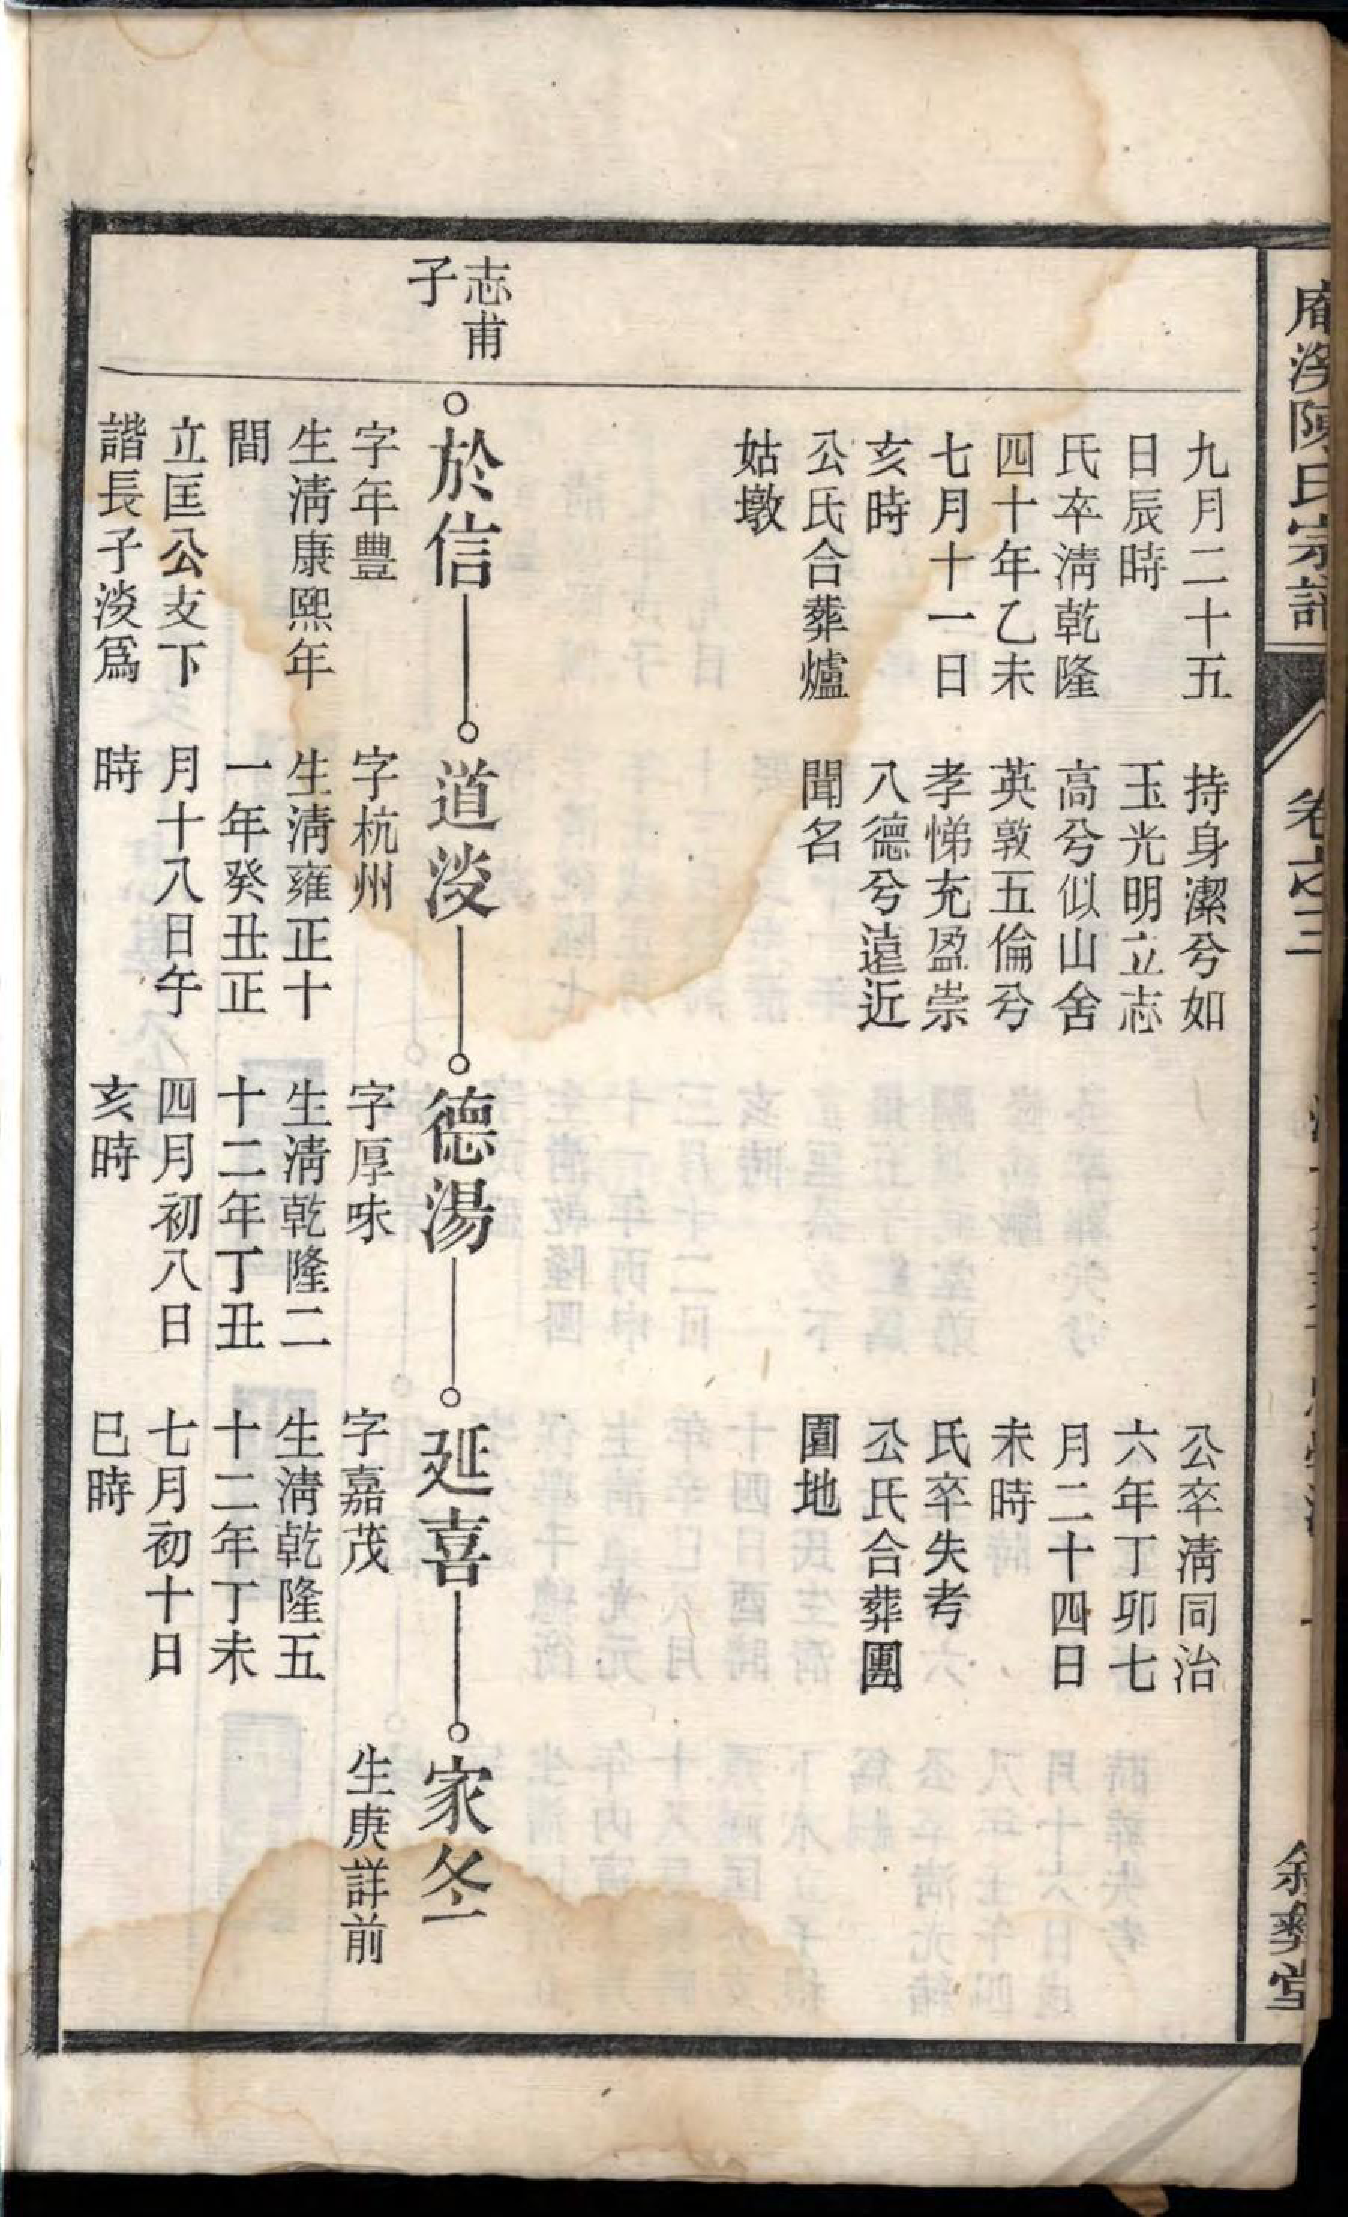 九月二十五
日辰時
氏卒淸乾隆
四十年乙未
七月十一日
亥時
公氏合葬爐
姑墩
持身潔兮如
玉光明立志
高兮似山舍
英敦五倫兮
孝悌充盈崇
八德兮遠近
聞名
公卒淸同治
六年丁卯七
月二十四日
未時
氏卒失考
公氏合葬團
園地
志甫
子
於信
字年豐
生淸康熙年
間
立匡公支下
諧長子淡爲
道淡
字杭州
生淸雍正十
一年癸丑正
月十八日午
時
德湯
字厚味
生淸乾隆二
十二年丁丑
四月初八日
亥時
延喜
字嘉茂
生淸乾隆五
十二年丁未
七月初十日
巳時
家冬
生庚詳前
陳氏宗譜
卷之三
堂